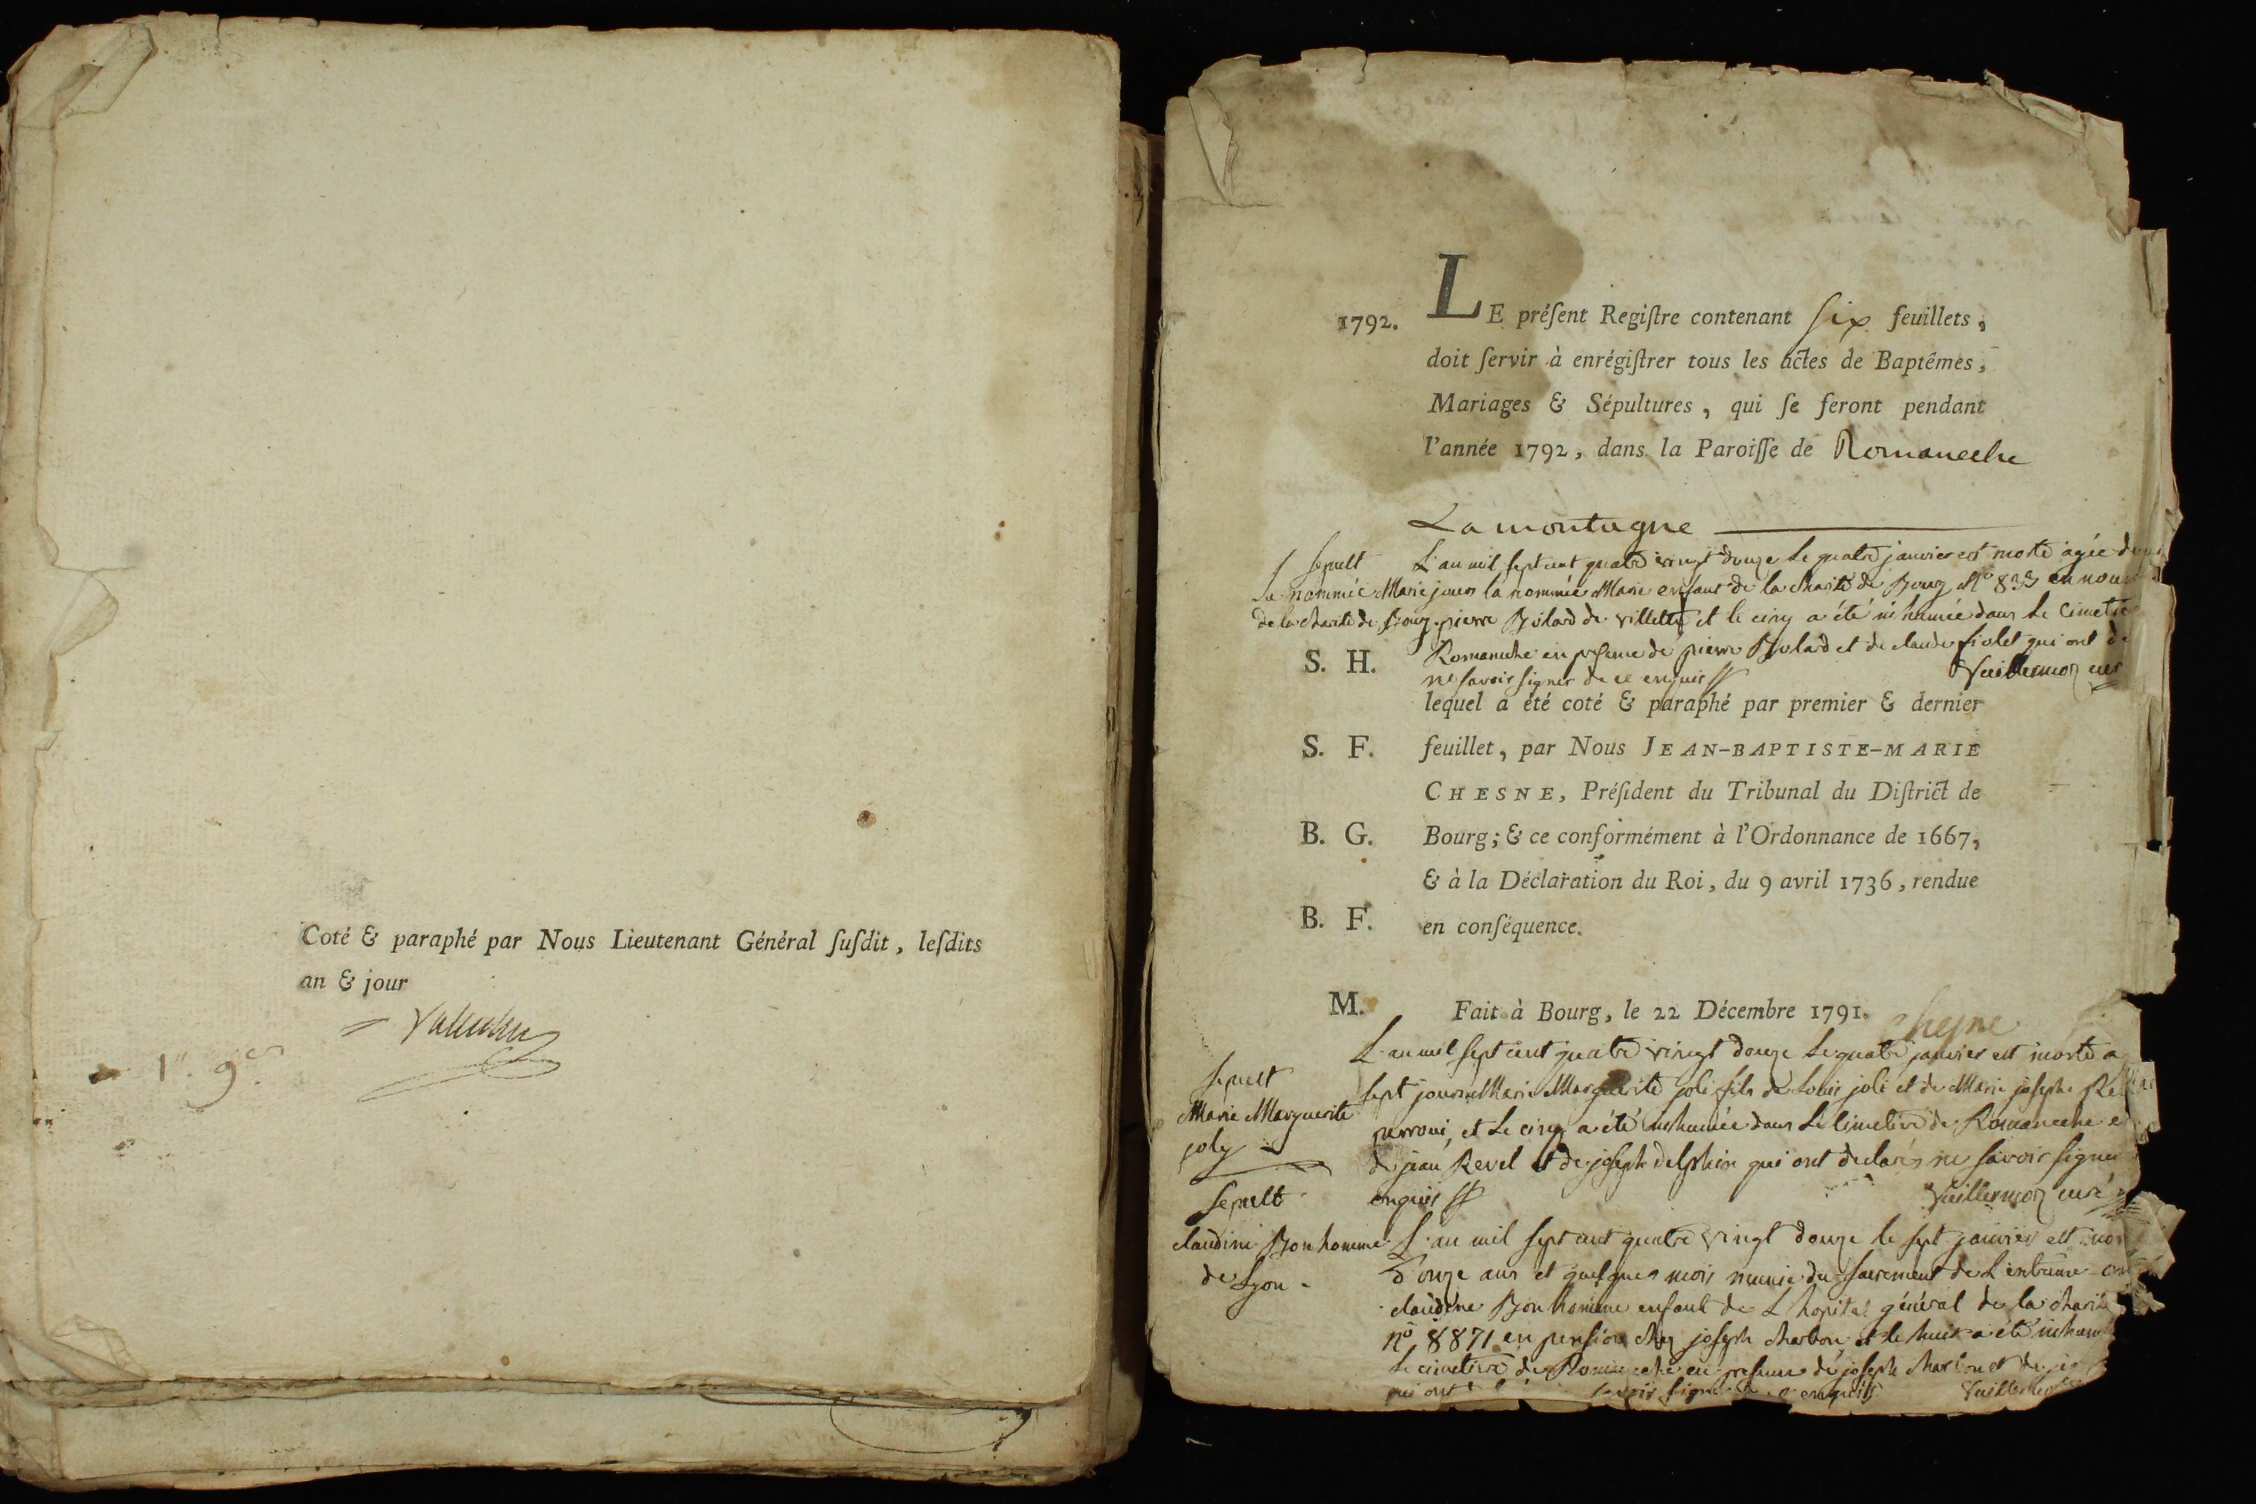 Coté & paraphé par Nous Lieutenant Général ſuſdit, leſdits
an & jour
1792.
LE préſent Regiſtre contenant six feuillets,
doit ſervir à enrégiſtrer tous les actes de Baptêmes,
Mariages & Sépultures, qui ſe ſeront pendant
l'année 1792, dans la Paroiſſe de Romaneche
La montagne
Sepult
la nommée Marie
de la charité de Bourg
L'an mil sept cent quatre vingt douze le quatre janvier est morte agée de
jours la nommée Marie enfant de la charité de Bourg N° 833 en
pierre Bolard de villette et le cinq a été inhumée dans le
Romaneche en presence de pierre Bolard et de claude fiolet qui ont
ne savoir signer de ce enquis
Vuillermoz
S. H.
lequel a été coté & paraphé par premier & dernier
S. F.
feuillet, par Nous JEAN-BAPTISTE-MARIE
CHESNE, Préſident du Tribunal du Diſtrict de
B. G.
Bourg; & ce conformément à l'Ordonnance de 1667,
& à la Déclaration du Roi, du 9 avril 1736, rendue
B. F.
en conſéquence.
M.
Fait à Bourg, le 22 Décembre 1791.
Chesne
Sepult
Marie Marguerite
joly
L'an mil sept cent quatre vingt douze le quatre janvier est morte a
sept jours Marie Marguerite joli fils de Louis joli et de Marie josephe
et le cinq a été inhumée dans le cimetiere de Romaneche
de jean Revel et de joseph delphin qui ont declarés ne savoir signer
enquis
Vuillermoz curé
Sepult
claudine Bonhomme
de Lyon
L'an mil sept cent quatre vingt douze le sept janvier est
d'onze ans et quelques mois munie du sacrement de l'extreme
claudine Bonhomme enfant de L'hopital général de la
n° 8871 en pension chez joseph charbon et le huit a été
le cimetiere de Romaneche en presence de joseph charbon et de
qui ont savoir signer de ce enquis